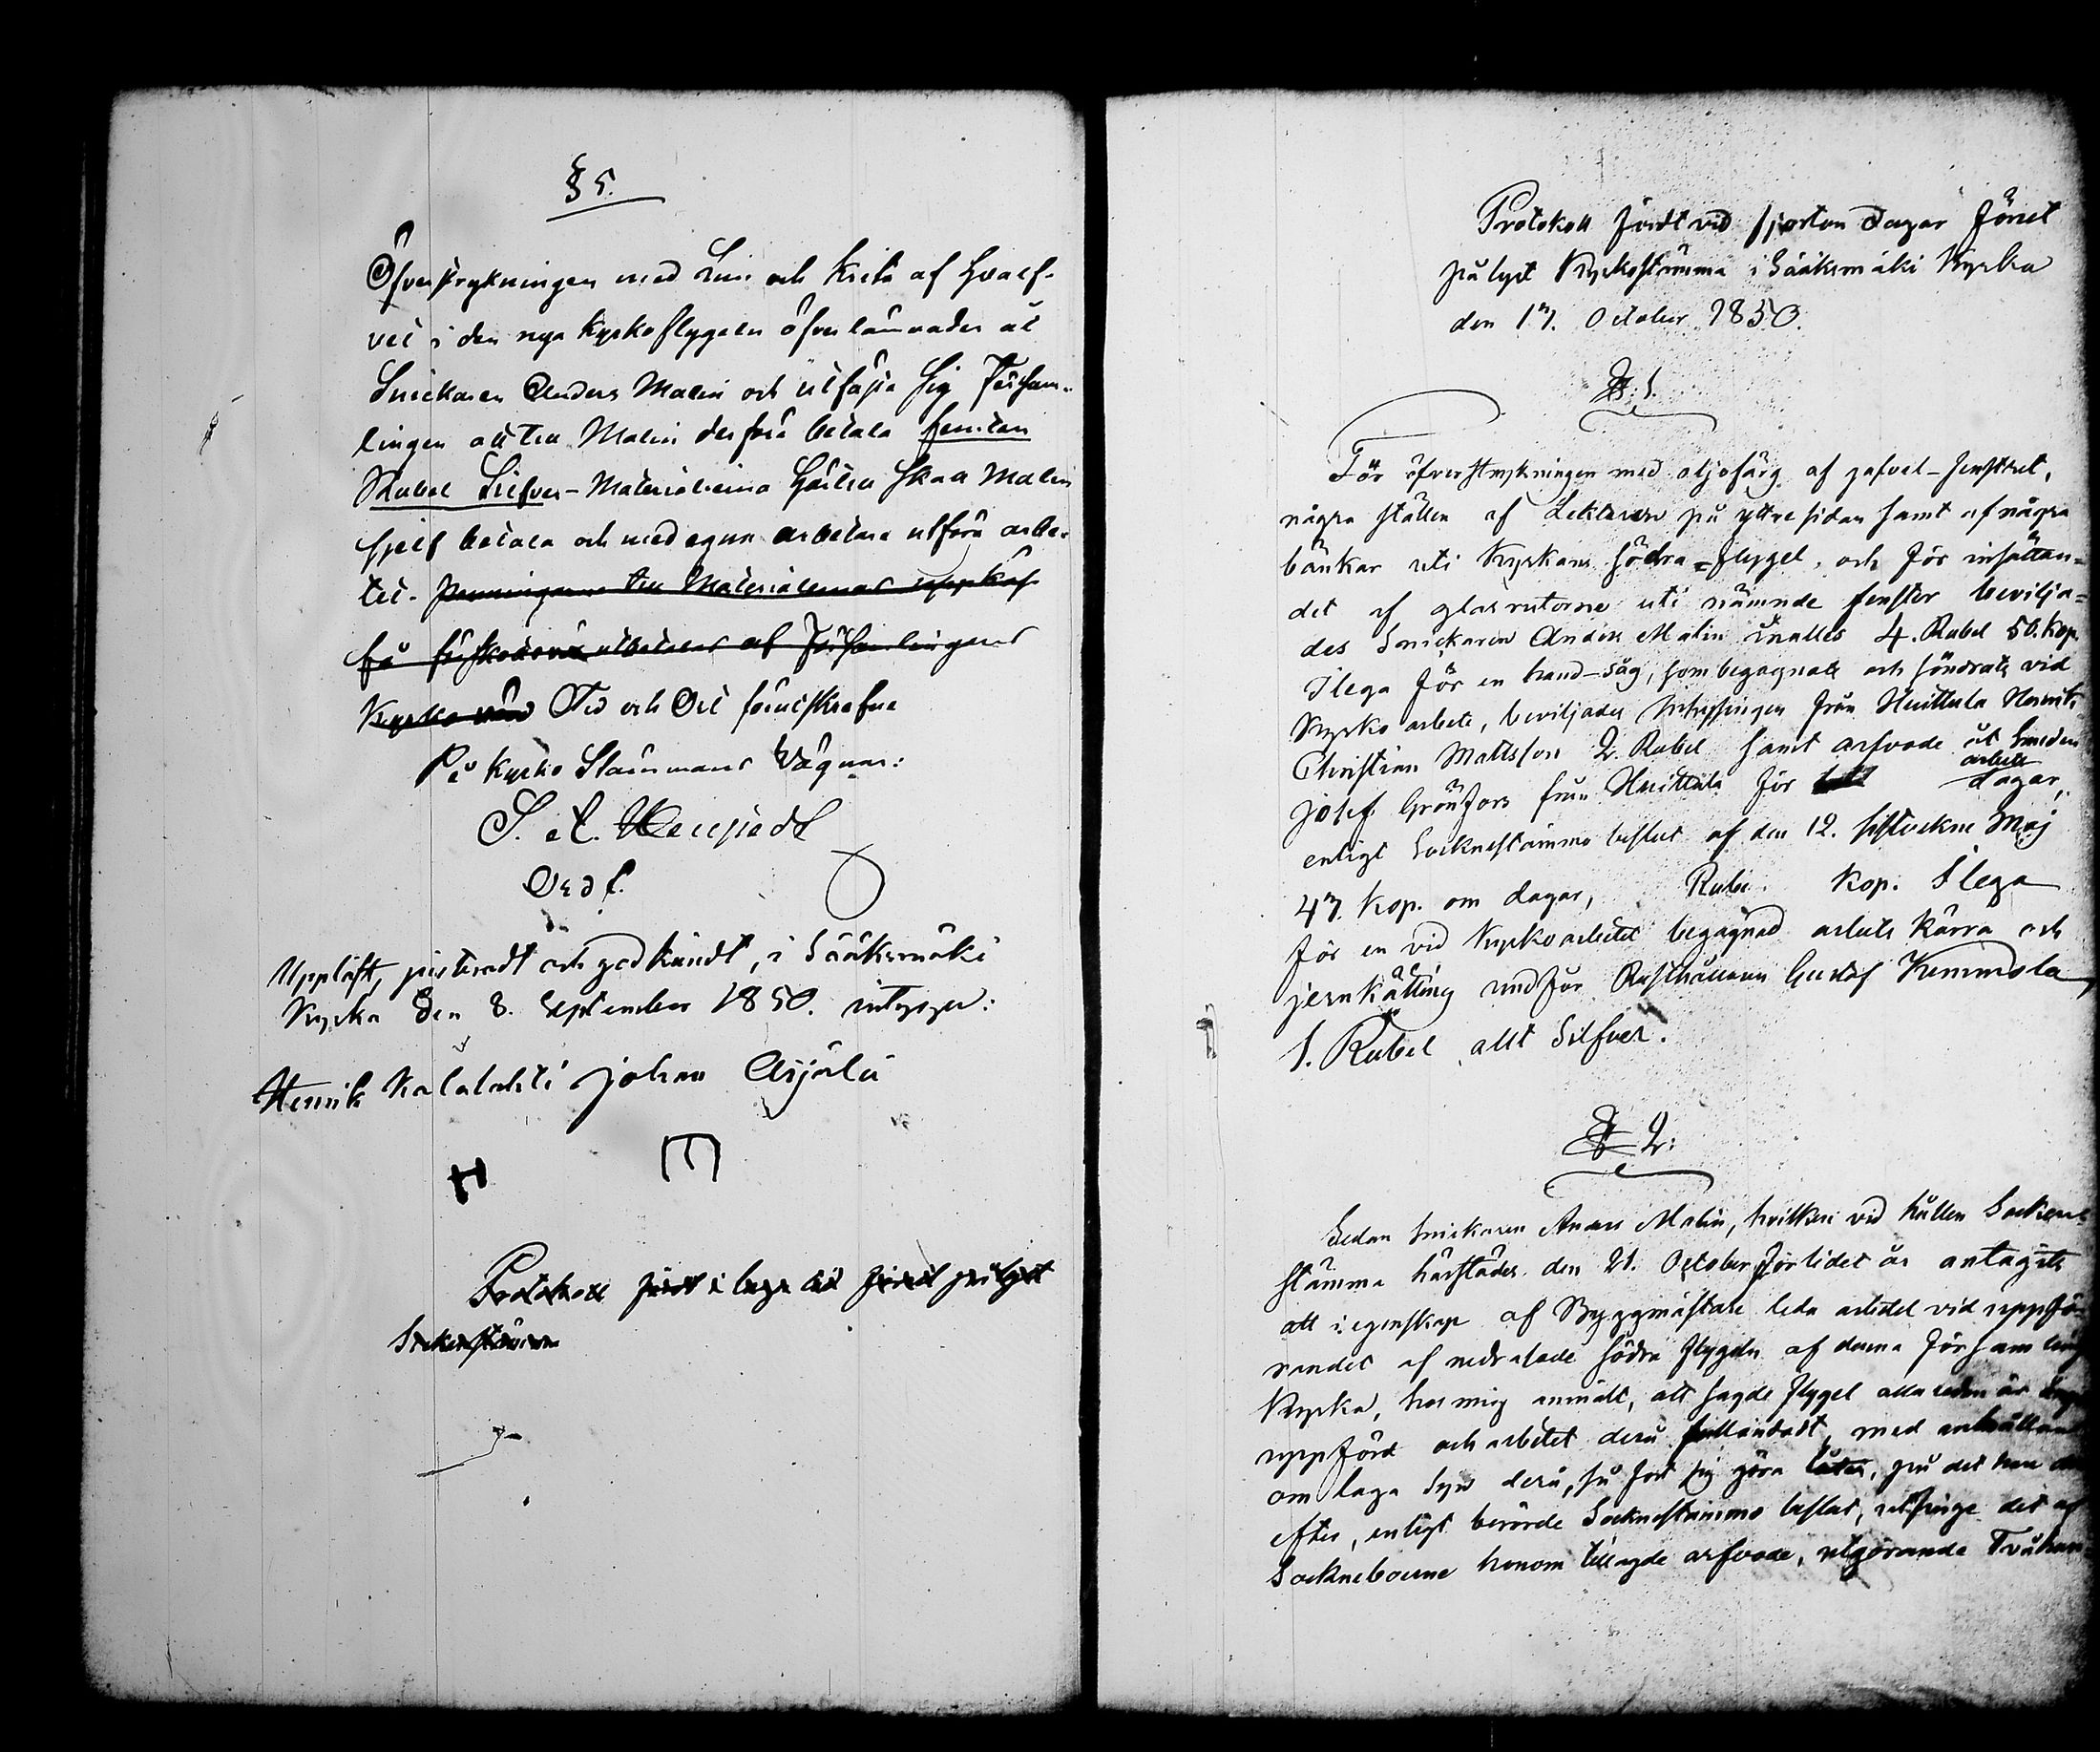 § 5.
Öfverstrykningen med Lim och Krita af Hvalf-
vet i den nya Kyrkoflygeln öfverlämnades åt
Snickaren Anders Malin och utfäste sig Församl-
lingen att till Malin derföre betala femton
Rubel Silfver - Materialierna härtill skall Malin
sjelf betala och med egna arbetare utföra arbe-
tet. Penningarne till Materialiernas uppköp
få förskottsvis utbetalas af Församlingens
Kyrko Tid och Ort förutskrefne
På Kyrko Stämmans Vägnar:
Ordf.
Uppläst, justeradt och godkändt, i Sääksmäki
Kyrka den 8. September 1850. intyga:
Henrik Kalalahti Johan Arjala
H E
Protokoll fördt i laga tid förut pålyst
Sockenstämma
Protokoll fördt vid fjorton dagar förut
pålyst Kyrkostämma i Sääksmäki Kyrka
den 17. October 1850.
§. 1.
För öfverstrykningen med oljefärg af gafvel-fenstret,
några ställen af Lektaren på yttre sidan samt af några
bänkar uti Kyrkans södra-flygel, och för insättan-
det af glasrutorne uti nämnde fenster bevilja-
des Snickaren Anders Malin inalles 4. Rubel 50. Kop.
Slega för en hand-såg, som begagnats och söndrats vid
Kyrko arbete, beviljades från Huittula Henrik
Christian Mattsson 2. Rubel samt arfvode åt Smeden
Josef Grönfors från Huittula för arbets dagar,
enligt Socknestämmo beslut af den 12. sistvekne Maj
47. Kop. om dagar, Rube. Kop. Slega
för en vid Kyrkoarbetet begagnad arbets kärra och
jernkätting undfår Rusthållaren Gustaf Kemmola,
1. Rubel allt Silfver.
§ 2:
Sedan Snickaren Anders Malin, hvilken vid hållen Socken-
stämma härstädes den 21. October förlidet år antagits
att i egenskap af Byggmästare leda arbetet vid uppfö-
randet af nedratade södra flygeln af denna församlings
Kyrka, hos mig anmält, att sagde flygel allaredan är
uppförd och arbetet derå fulländadt, med anhållan
om laga Syn derå, så fort sig göra låter, på det han der
efter, enligt berörde Socknestämmo beslut, utfinge det af
Sockneboerne honom tillagde arfvode, utgörande Tvåhun-